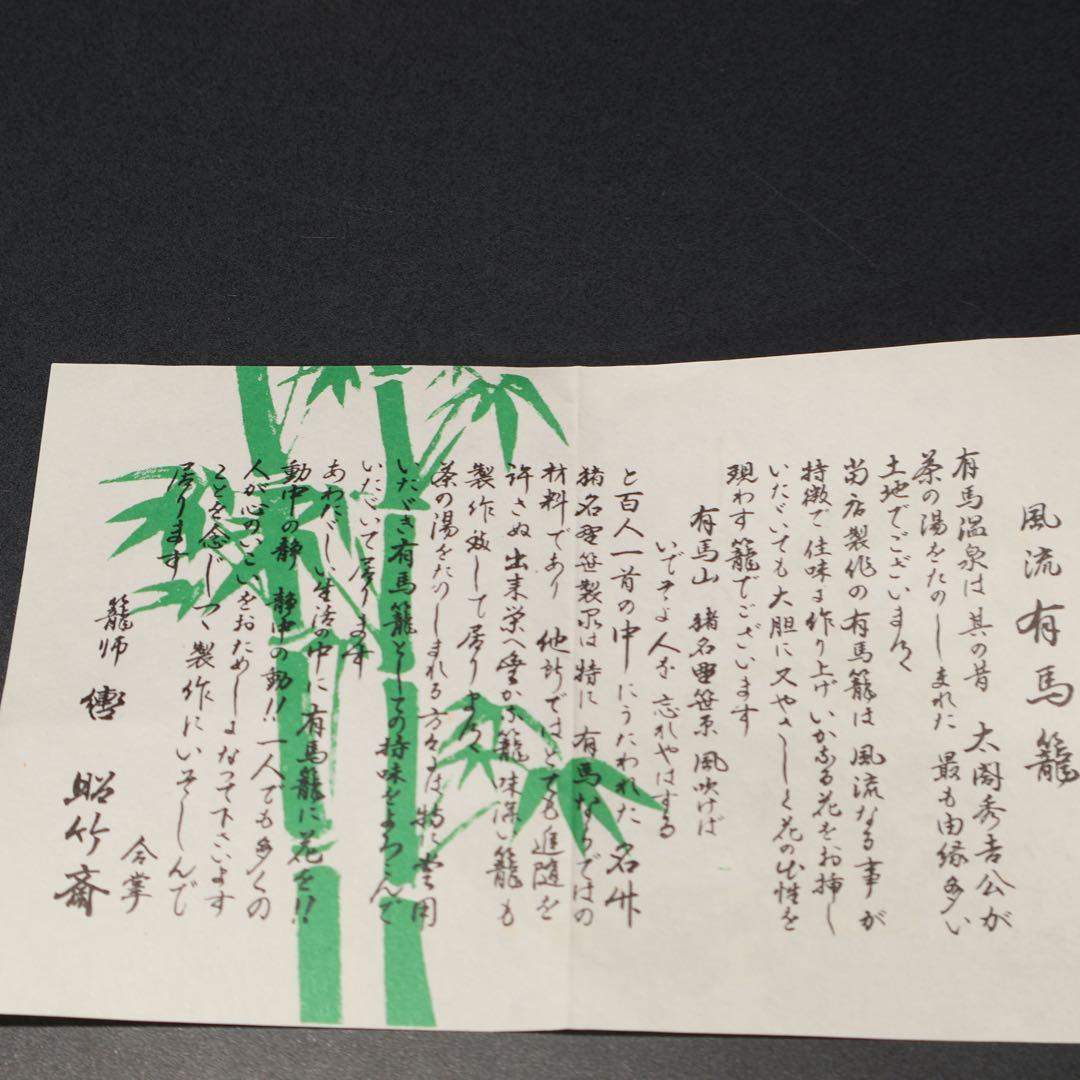 風流有馬籠
有馬温泉は其の昔 太閤秀吉公が
茶の湯をたのしまれた 最も由縁多い
土地でございます
当店製作の有馬籠は風流なる事が
特徴で佳味を作り上げいかなる花をお挿し
いただいても大胆に又やさしく花の心性を
現わす籠でございます
有馬山 猪名野笹原 風吹けば
いでそよ人を 忘れやはする
と百人一首の中にうたわれた 名竹
猪名野笹製品は特に 有馬ならではの
材料であり 他所ではとても追随を
許さぬ 出来栄へ豊かな籠 味深い籠も
製作致して居ります
茶の湯をたのしまれる方々は 特に愛用
いただき有馬籠としての特味をよろこんで
いただいて居ります
あわただしい生活の中に 有馬籠に花を!!
動中の静 静中の動!! 一人でも多くの
人が心のいこいをおためしになって下さいます
ことを念じつゝ製作にいそしんで
居ります
合掌
籠師 轡 昭竹斎